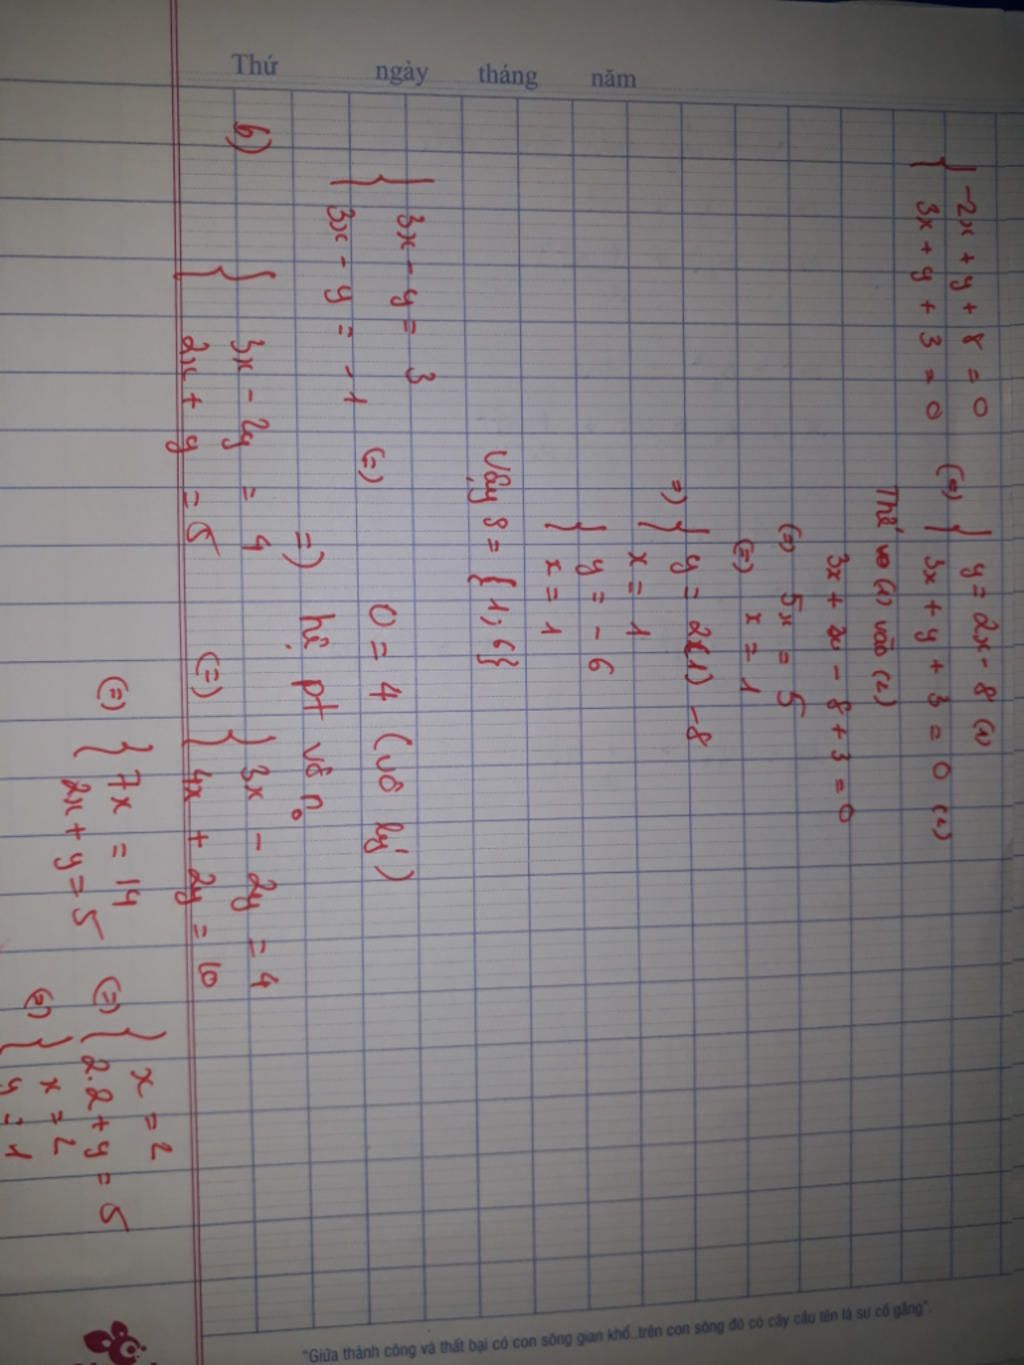 Thứ ngày tháng năm
{ -2x + y + 8 = 0
{ 3x + y + 3 = 0
(=) { y = 2x - 8 (1)
{ 3x + y + 3 = 0 (2)
Thế (1) vào (2)
3x + 2x - 8 + 3 = 0
(=) 5x = 5
(=) x = 1
=) { y = 2(1) - 8
{ x = 1
{ y = - 6
{ x = 1
Vậy S = { 1, 6 }
{ 3x - y = 3
{ 3x - y = - 1
(=) 0 = 4 (vô lý)
=) hệ pt vô no
b) { 3x - 2y = 4
{ 2x + y = 5
(=) { 3x - 2y = 4
{ 4x + 2y = 10
(=) { 7x = 14
{ 2x + y = 5
(=) { x = 2
{ 2.2 + y = 5
(=) { x = 2
{ y = 1
"Giữa thành công và thất bại có con sông gian khổ..trên con sông đó có cây cầu tên là sự cố gắng".